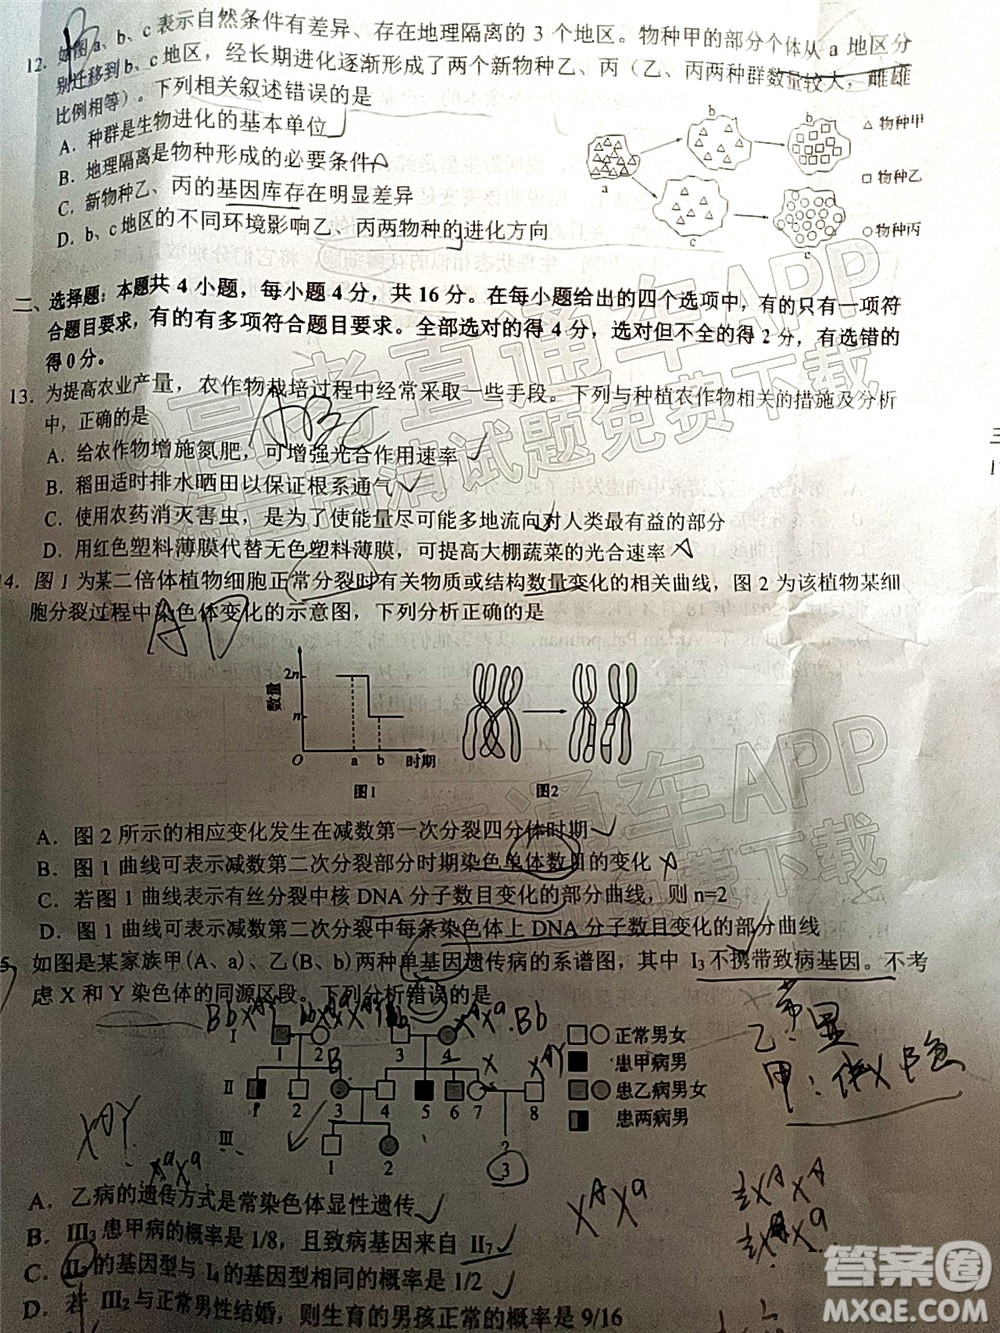 12. 如图a、b、c表示自然条件有差异、存在地理隔离的 3 个地区。物种甲的部分个体从 a 地区分
别迁移到b、c地区，经长期进化逐渐形成了两个新物种乙、丙（乙、丙两种群数量较大，雌雄
比例相等）。下列相关叙述错误的是
A．种群是生物进化的基本单位
B．地理隔离是物种形成的必要条件
C．新物种乙、丙的基因库存在明显差异
D．b、c地区的不同环境影响乙、丙两物种的进化方向
a
b
b
c
c
物种甲
物种乙
物种丙
二、选择题：本题共 4 小题，每小题 4 分，共 16 分。在每小题给出的四个选项中，有的只有一项符
合题目要求，有的有多项符合题目要求。全部选对的得 4 分，选对但不全的得 2 分，有选错的
得 0 分。
13. 为提高农业产量，农作物栽培过程中经常采取一些手段。下列与种植农作物相关的措施及分析
中，正确的是
ABC
A．给农作物增施氮肥，可增强光合作用速率
B．稻田适时排水晒田以保证根系通气
C．使用农药消灭害虫，是为了使能量尽可能多地流向对人类最有益的部分
D．用红色塑料薄膜代替无色塑料薄膜，可提高大棚蔬菜的光合速率
14. 图 1 为某二倍体植物细胞正常分裂时有关物质或结构数量变化的相关曲线，图 2 为该植物某细
胞分裂过程中染色体变化的示意图，下列分析正确的是
AD
数量
2n
n
O
a
b
时期
图1
图2
A．图 2 所示的相应变化发生在减数第一次分裂四分体时期
B．图 1 曲线可表示减数第二次分裂部分时期染色单体数目的变化
C．若图 1 曲线表示有丝分裂中核 DNA 分子数目变化的部分曲线，则 n=2
D．图 1 曲线可表示减数第二次分裂中每条染色体上 DNA 分子数目变化的部分曲线
5 如图是某家族甲(A、a)、乙(B、b)两种单基因遗传病的系谱图，其中 I₃不携带致病基因。不考
虑 X 和 Y 染色体的同源区段。下列分析错误的是
I
1 2 3 4
II
1 2 3 4 5 6 7 8
III
1 2 3
正常男女
患甲病男
患乙病男女
患两病男
乙：常显
甲：伴X隐
A．乙病的遗传方式是常染色体显性遗传
B．III₃患甲病的概率是 1/8，且致病基因来自 II₇
C．II₆的基因型与 I₄的基因型相同的概率是 1/2
D．若 III₂与正常男性结婚，则生育的男孩正常的概率是 9/16
高考直通车APP
海量高清试题免费下载
答案圈
MXQE.COM